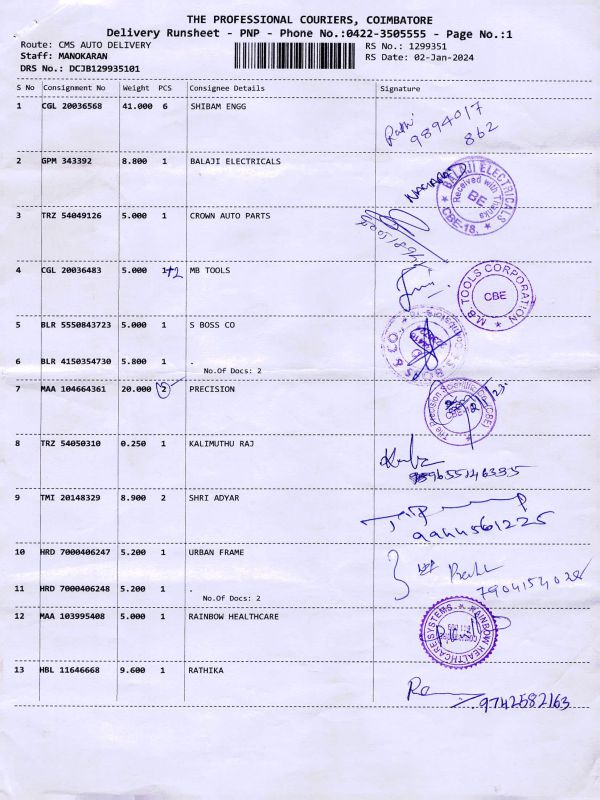 THE PROFESSIONAL COURIERS, COIMBATORE
Delivery Runsheet - PNP - Phone No.:0422-3505555 - Page No.:1
Route: CMS AUTO DELIVERY RS No.: 1299351
Staff: MANOKARAN RS Date: 02-Jan-2024
DRS No.: DCJB129935101
S No Consignment No Weight PCS Consignee Details Signature
1 CGL 20036568 41.000 6 SHIBAM ENGG
Rathi
9894017
862
2 GPM 343392 8.800 1 BALAJI ELECTRICALS
BALAJI ELECTRICALS
Received with Thanks
BE
CBE-18.
3 TRZ 54049126 5.000 1 CROWN AUTO PARTS
4 CGL 20036483 5.000 1+2 MB TOOLS
M.B. TOOLS CORPORATION
CBE
5 BLR 5550843723 5.000 1 S BOSS CO
6 BLR 4150354730 5.800 1 .
No.Of Docs: 2
7 MAA 104664361 20.000 2 PRECISION
The Precision Scientific Co. (CBE)
8 TRZ 54050310 0.250 1 KALIMUTHU RAJ
9655146335
9 TMI 20148329 8.900 2 SHRI ADYAR
9944561225
10 HRD 7000406247 5.200 1 URBAN FRAME
11 HRD 7000406248 5.200 1 .
No.Of Docs: 2
12 MAA 103995408 5.000 1 RAINBOW HEALTHCARE
RAINBOW HEALTHCARE SYSTEMS
13 HBL 11646668 9.600 1 RATHIKA
9742582163